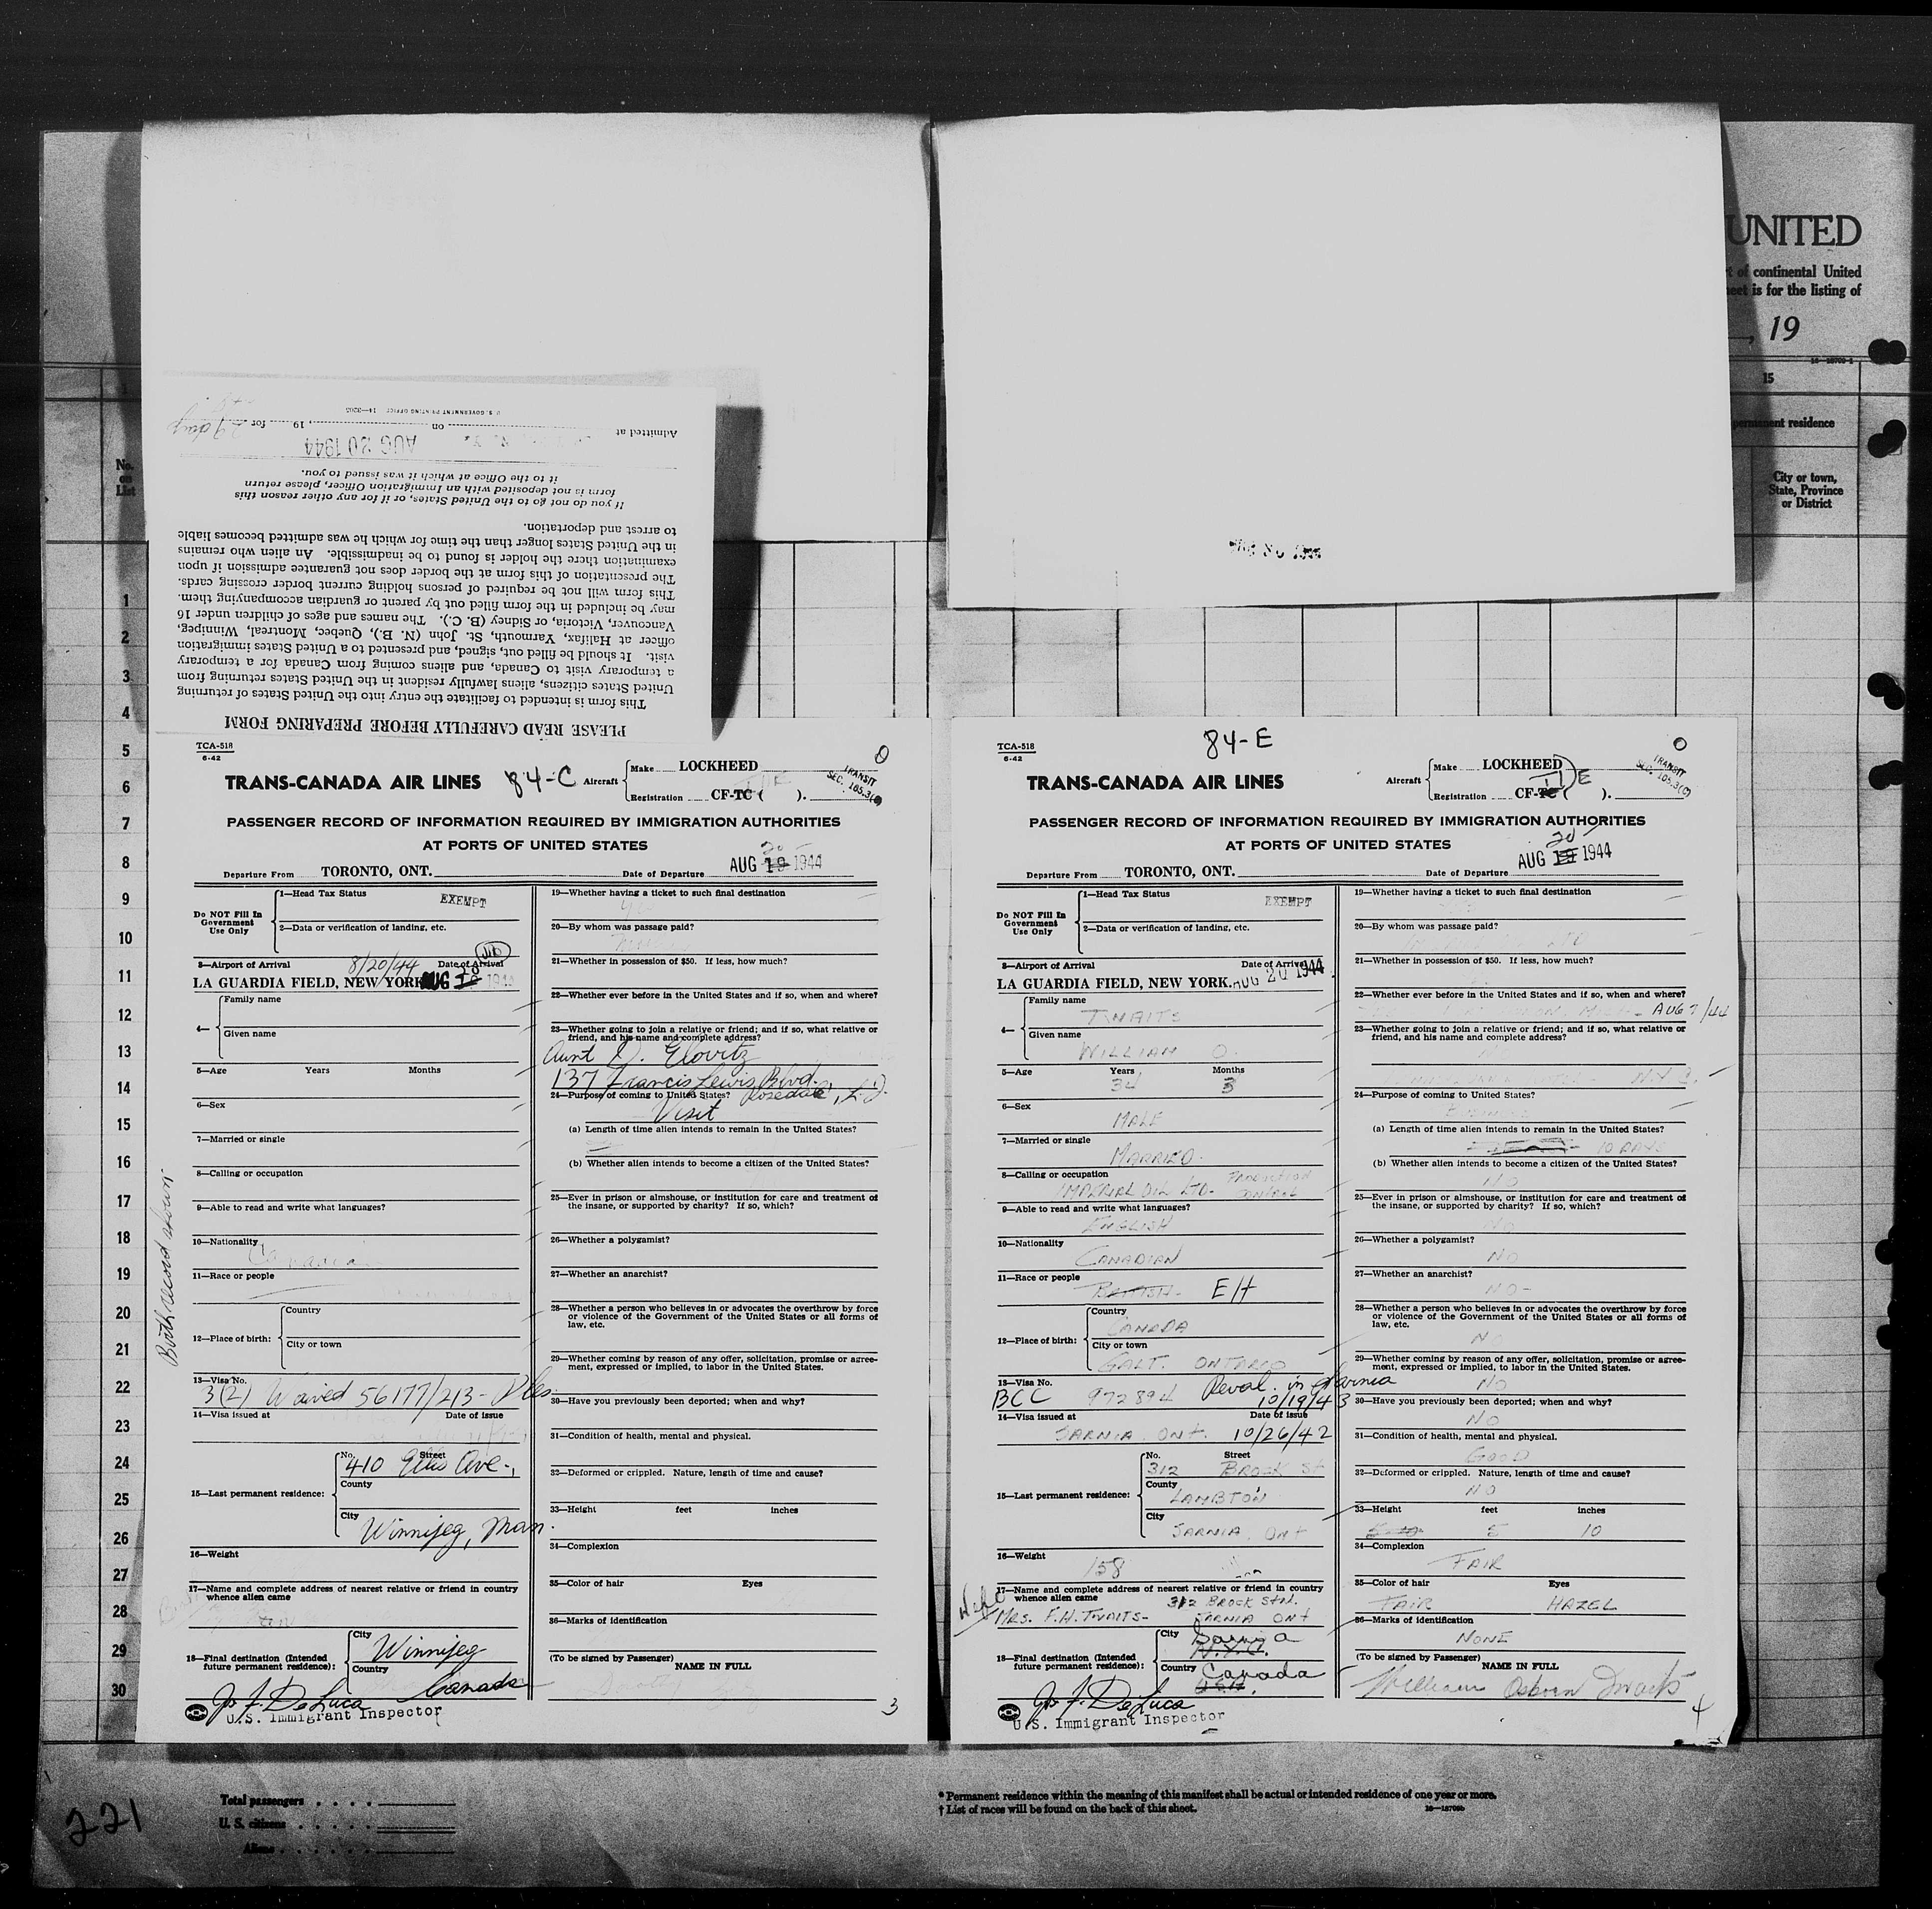 UNITED
of continental United
is for the listing of
, 19
15
permanent residence
City or town,
State, Province
or District
No.
on
List
PLEASE READ CAREFULLY BEFORE PREPARING FORM
This form is intended to facilitate the entry into the United States of returning
United States citizens, aliens lawfully resident in the United States returning from
a temporary visit to Canada, and aliens coming from Canada for a temporary
visit. It should be filled out, signed, and presented to a United States immigration
officer at Halifax, Yarmouth, St. John (N. B.), Quebec, Montreal, Winnipeg,
Vancouver, Victoria, or Sidney (B. C.). The names and ages of children under 16
may be included in the form filled out by parent or guardian accompanying them.
This form will not be required of persons holding current border crossing cards.
The presentation of this form at the border does not guarantee admission if upon
examination there the holder is found to be inadmissible. An alien who remains
in the United States longer than the time for which he was admitted becomes liable
to arrest and deportation.
If you do not go to the United States, or if for any other reason this
form is not deposited with an Immigration Officer, please return
it to the Office at which it was issued to you.
AUG 20 1944
Admitted at on , 19 for
U. S. GOVERNMENT PRINTING OFFICE 14—3205
1
2
3
4
5
6
7
8
9
10
11
12
13
14
15
16
17
18
19
20
21
22
23
24
25
26
27
28
29
30
TCA-518
6-42
TRANS-CANADA AIR LINES
84-C
Aircraft
Make LOCKHEED
Registration CF-TC ( ).
TRANSIT
SEC. 165.3(C)
PASSENGER RECORD OF INFORMATION REQUIRED BY IMMIGRATION AUTHORITIES
AT PORTS OF UNITED STATES
20
Departure From TORONTO, ONT. Date of Departure AUG 19 1944
Do NOT Fill In
Government
Use Only
1—Head Tax Status EXEMPT
2—Data or verification of landing, etc.
3—Airport of Arrival 8/20/44 Date of Arrival
LA GUARDIA FIELD, NEW YORK AUG 20 1944
4—
Family name
Given name
5—Age Years Months
6—Sex
7—Married or single
8—Calling or occupation
9—Able to read and write what languages?
10—Nationality
Canadian
11—Race or people
12—Place of birth:
Country
City or town
Birth record shown
13—Visa No.
3(2) Waived 56177/213-
14—Visa issued at Date of issue
15—Last permanent residence:
No. Street
410 Ellis Ave.,
County
City
Winnipeg, Man.
16—Weight
17—Name and complete address of nearest relative or friend in country
whence alien came
18—Final destination (Intended
future permanent residence):
City
Winnipeg
Country
Canada
Jos F. DeLuca
U.S. Immigrant Inspector
19—Whether having a ticket to such final destination
20—By whom was passage paid?
21—Whether in possession of $50. If less, how much?
22—Whether ever before in the United States and if so, when and where?
23—Whether going to join a relative or friend; and if so, what relative or
friend, and his name and complete address?
Aunt D. Elovitz
137 Francis Lewis Blvd.
Rosedale, L.I.
24—Purpose of coming to United States?
Visit
(a) Length of time alien intends to remain in the United States?
(b) Whether alien intends to become a citizen of the United States?
25—Ever in prison or almshouse, or institution for care and treatment of
the insane, or supported by charity? If so, which?
26—Whether a polygamist?
27—Whether an anarchist?
28—Whether a person who believes in or advocates the overthrow by force
or violence of the Government of the United States or all forms of
law, etc.
29—Whether coming by reason of any offer, solicitation, promise or agree-
ment, expressed or implied, to labor in the United States.
30—Have you previously been deported; when and why?
31—Condition of health, mental and physical.
32—Deformed or crippled. Nature, length of time and cause?
33—Height feet inches
34—Complexion
35—Color of hair Eyes
36—Marks of identification
(To be signed by Passenger) NAME IN FULL
3
TCA-518
6-42
84-E
TRANS-CANADA AIR LINES
Aircraft
Make LOCKHEED
Registration CF-TC ( ).
E
TRANSIT
SEC. 165.3(C)
PASSENGER RECORD OF INFORMATION REQUIRED BY IMMIGRATION AUTHORITIES
AT PORTS OF UNITED STATES
20
Departure From TORONTO, ONT. Date of Departure AUG 19 1944
Do NOT Fill In
Government
Use Only
1—Head Tax Status EXEMPT
2—Data or verification of landing, etc.
3—Airport of Arrival Date of Arrival
LA GUARDIA FIELD, NEW YORK. AUG 20 1944
4—
Family name
TWAITS
Given name
WILLIAM O.
5—Age Years Months
34 3
6—Sex
MALE
7—Married or single
MARRIED.
8—Calling or occupation
IMPERIAL OIL LTD. PRODUCTION CONTROL
9—Able to read and write what languages?
ENGLISH
10—Nationality
CANADIAN
11—Race or people
BRITISH. EH
12—Place of birth:
Country
CANADA
City or town
GALT. ONTARIO
13—Visa No.
BCC 972894 Reval. in Sarnia
10/19/43
14—Visa issued at Date of issue
SARNIA. ONT. 10/26/42
15—Last permanent residence:
No. Street
312 BROCK ST
County
LAMBTON
City
SARNIA. ONT
16—Weight
158
17—Name and complete address of nearest relative or friend in country
whence alien came
312 BROCK ST N.
Wife
MRS. F.H. TWAITS- SARNIA ONT
18—Final destination (Intended
future permanent residence):
City
Sarnia
Country
Canada
Jos F. DeLuca
U.S. Immigrant Inspector
19—Whether having a ticket to such final destination
20—By whom was passage paid?
21—Whether in possession of $50. If less, how much?
22—Whether ever before in the United States and if so, when and where?
AUG 7/44
23—Whether going to join a relative or friend; and if so, what relative or
friend, and his name and complete address?
24—Purpose of coming to United States?
(a) Length of time alien intends to remain in the United States?
10 DAYS
(b) Whether alien intends to become a citizen of the United States?
NO
25—Ever in prison or almshouse, or institution for care and treatment of
the insane, or supported by charity? If so, which?
NO
26—Whether a polygamist?
NO
27—Whether an anarchist?
NO-
28—Whether a person who believes in or advocates the overthrow by force
or violence of the Government of the United States or all forms of
law, etc.
NO
29—Whether coming by reason of any offer, solicitation, promise or agree-
ment, expressed or implied, to labor in the United States.
NO
30—Have you previously been deported; when and why?
NO
31—Condition of health, mental and physical.
GOOD
32—Deformed or crippled. Nature, length of time and cause?
NO
33—Height feet inches
5 10
34—Complexion
FAIR
35—Color of hair Eyes
FAIR HAZEL
36—Marks of identification
NONE
(To be signed by Passenger) NAME IN FULL
William Osborn Twaits
4
221
Total passengers
U. S. citizens
Aliens
* Permanent residence within the meaning of this manifest shall be actual or intended residence of one year or more.
† List of races will be found on the back of this sheet.